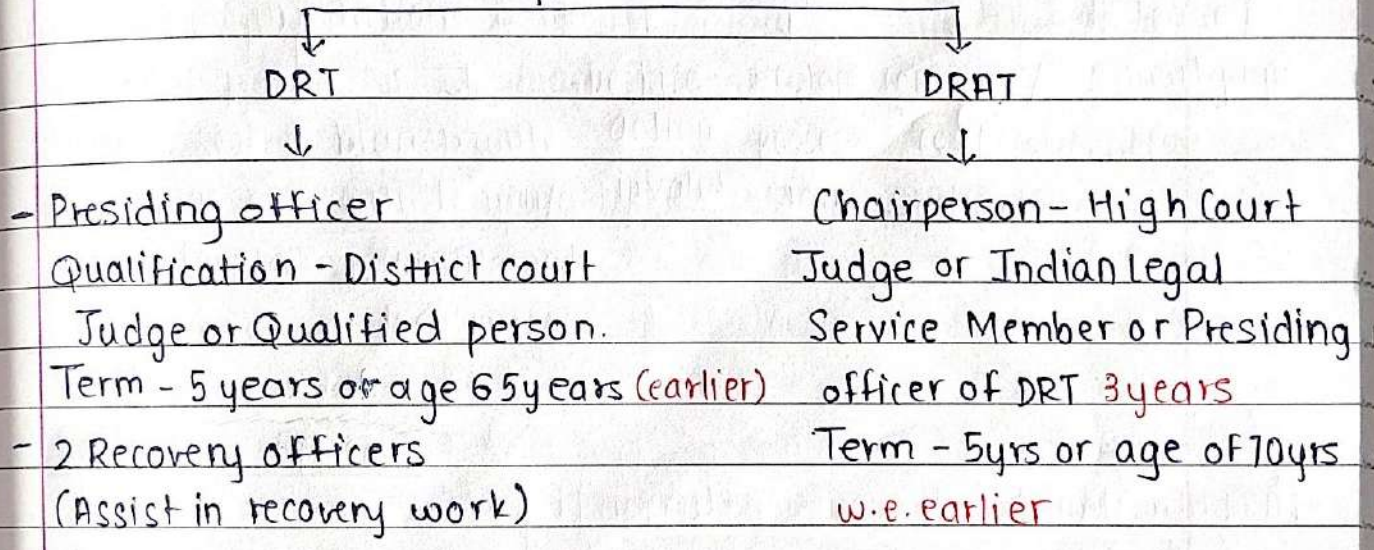 DRT
DRAT
- Presiding officer
Qualification - District court
Judge or Qualified person.
Term - 5 years or age 65years (earlier)
- 2 Recovery officers
(Assist in recovery work)
Chairperson - High Court
Judge or Indian legal
Service Member or Presiding
officer of DRT 3years
Term - 5yrs or age of 70yrs
w.e. earlier